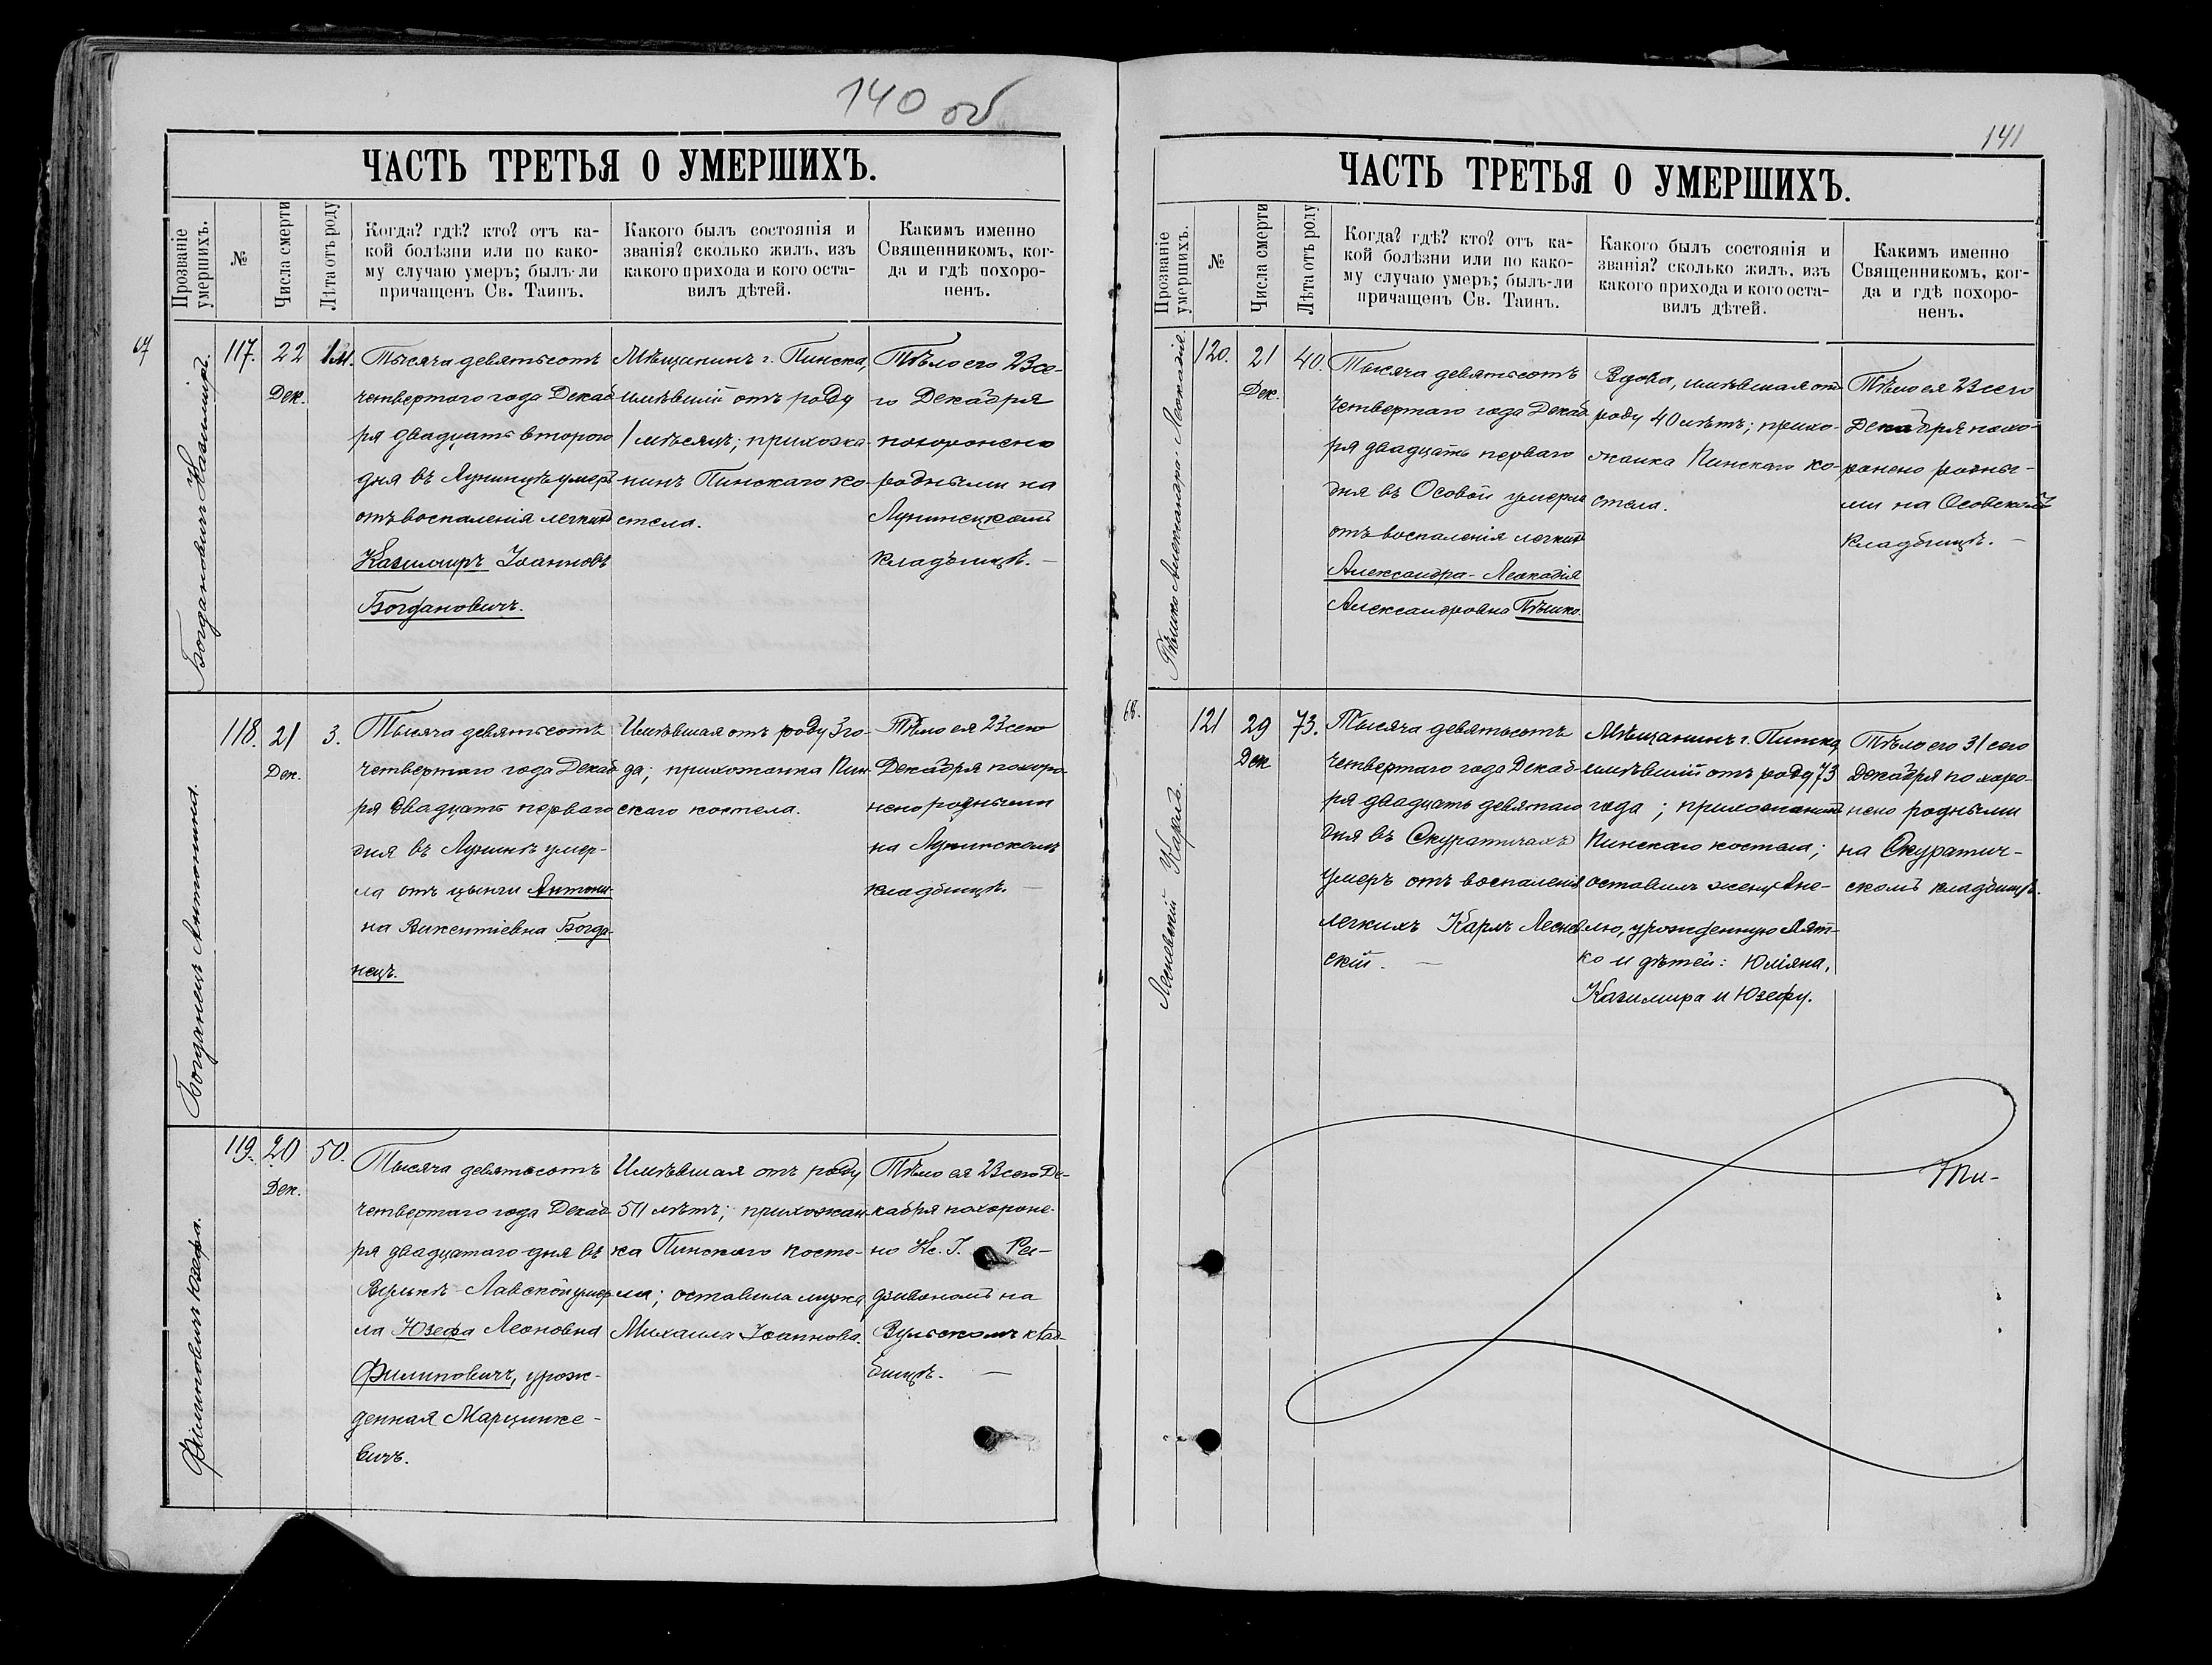 140 об
ЧАСТЬ ТРЕТЬЯ О УМЕРШИХЪ.
Прозваніе умершихъ.
№
Числа смерти
Лѣта отъ роду
Когда? гдѣ? кто? отъ ка-
кой болѣзни или по како-
му случаю умеръ; былъ-ли
причащенъ Св. Таинъ.
Какого былъ состоянія и
званія? сколько жилъ, изъ
какого прихода и кого оста-
вилъ дѣтей.
Какимъ именно
Священникомъ, ког-
да и гдѣ похоро-
ненъ.
67
Богдановичъ Казимиръ.
117.
22
Дек.
1 м.
Тысяча девятьсотъ
четвертого года Декаб
ря двадцать второго
дня въ Лунинцѣ умеръ
отъ воспаленія легкихъ
Казимиръ Іоанновъ
Богдановичъ.
Мѣщанинъ г. Пинска,
имѣвшій отъ роду
1 мѣсяцъ; прихожа-
нинъ Пинскаго ко-
стела.
Тѣло его 23 се-
го Декабря
похоронено
родными на
Лунинецкомъ
кладбищѣ. —
Богданецъ Антонина.
118.
21
Дек.
3.
Тысяча девятьсотъ
четвертаго года Декаб
ря двадцать перваго
дня въ Лунинѣ умер-
ла отъ цынги Антони-
на Викентіевна Богда-
нецъ.
Имѣвшая отъ роду 3 го-
да; прихожанка Пин-
скаго костела.
Тѣло ея 23 сего
Декабря похоро
нено родными
на Лунинскомъ
кладбищѣ. —
Филиповичъ Юзефа.
119.
20
Дек.
50.
Тысяча девятьсотъ
четвертаго года Декаб-
ря двадцатаго дня въ
Вулькѣ-Лавской умер-
ла Юзефа Леоновна
Филиповичъ, урож-
денная Марцинке-
вичъ.
Имѣвшая отъ роду
50 лѣтъ; прихожан-
ка Пинскаго косте-
ла; оставила мужа
Михаила Іоаннова.
Тѣло ея 23 сего Де-
кабря похороне-
но Кс. І. Ра-
дзивономъ на
Вульскомъ клад-
бищѣ. —
141
ЧАСТЬ ТРЕТЬЯ О УМЕРШИХЪ.
Прозваніе умершихъ.
№
Числа смерти
Лѣта отъ роду
Когда? гдѣ? кто? отъ ка-
кой болѣзни или по како-
му случаю умеръ; былъ-ли
причащенъ Св. Таинъ.
Какого былъ состоянія и
званія? сколько жилъ, изъ
какого прихода и кого оста-
вилъ дѣтей.
Какимъ именно
Священникомъ, ког-
да и гдѣ похоро-
ненъ.
Тѣшко Александра-Леокадія.
120.
21
Дек.
40.
Тысяча девятьсотъ
четвертаго года Декаб-
ря двадцать перваго
дня въ Осовой умерла
отъ воспаленія легкихъ
Александра-Леокадія
Александровна Тѣшко.
Вдова, имѣвшая отъ
роду 40 лѣтъ; прихо-
жанка Пинскаго ко-
стела.
Тѣло ея 23 сего
Декабря похо-
ронено родны-
ми на Осовскомъ
кладбищѣ. —
68.
Лесневскій Карлъ.
121
29
Дек
73.
Тысяча девятьсотъ
четвертаго года Декаб-
ря двадцать девятаго
дня въ Скуратичахъ
умеръ отъ воспаленія
легкихъ Карлъ Леснев
скій. —
Мѣщанинъ г. Пинска
имѣвшій отъ роду 73
года; прихожанинъ
Пинскаго костела;
оставилъ жену Ане-
лю, урожденную Лят-
ко и дѣтей: Юліяна,
Казимира и Юзефу.
Тѣло его 31 сего
Декабря похоро-
нено родными
на Скуратич-
скомъ кладбищѣ.